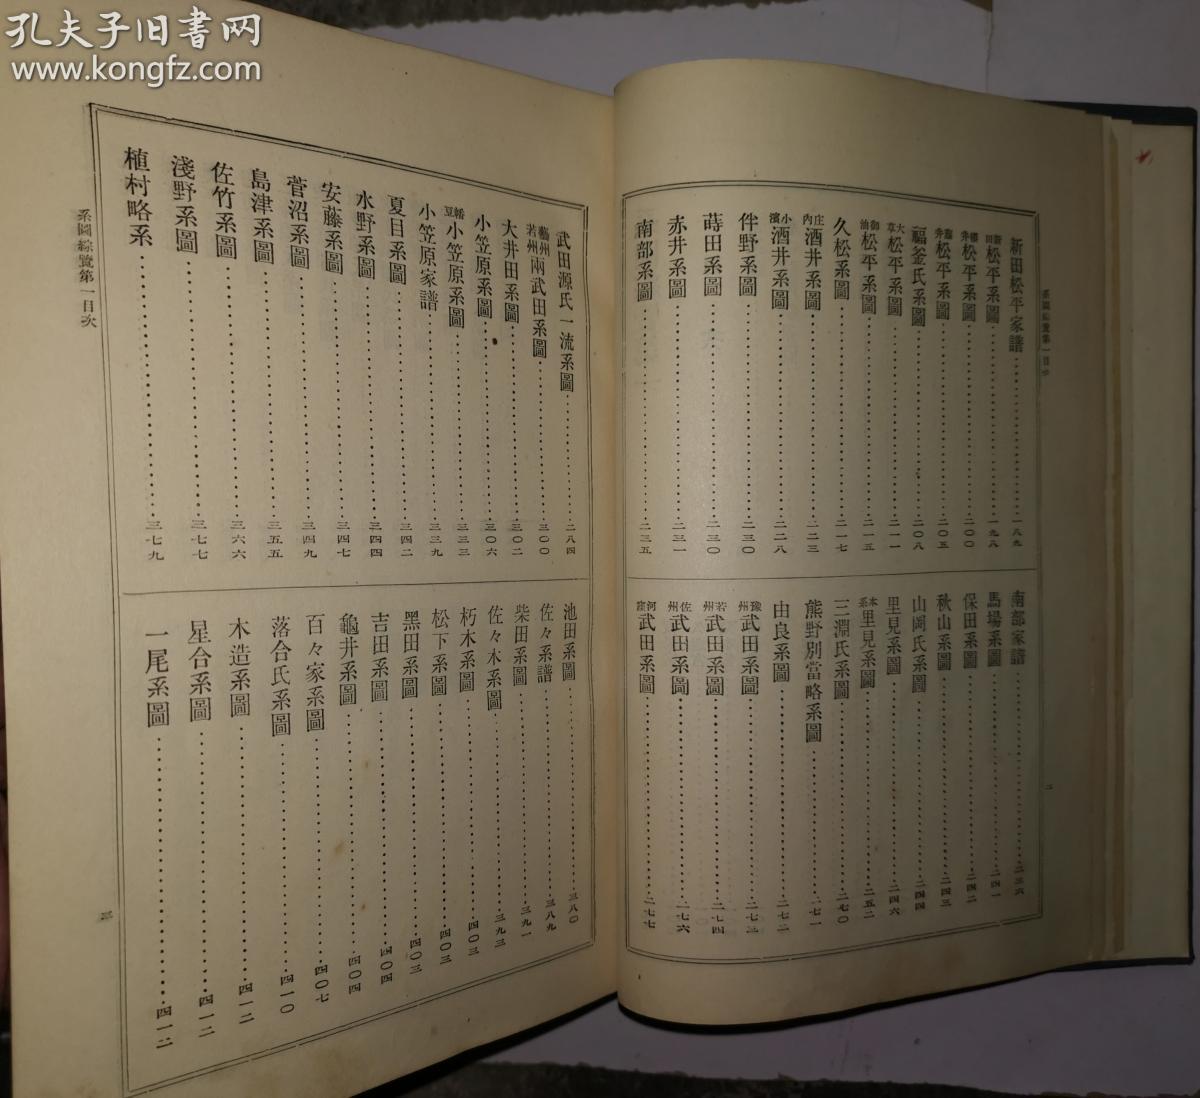 孔夫子旧书网
www.kongfz.com
系圖綜覽第一目次
二
新田松平家譜 一八九
新田松平系圖 一九八
櫻井松平系圖 二〇〇
瀧井松平系圖 二〇五
福釜氏系圖 二〇八
大草松平系圖 二一一
御油松平系圖 二一五
久松系圖 二一七
庄內酒井系圖 二二三
小濱酒井系圖 二二八
伴野系圖 二三〇
蒔田系圖 二三〇
赤井系圖 二三一
南部系圖 二三五
南部家譜 二三六
馬場系圖 二四一
保田系圖 二四二
秋山系圖 二四三
山岡氏系圖 二四四
里見系圖 二四六
本系里見系圖 二五二
三淵氏系圖 二七〇
熊野別當略系圖 二七一
由良系圖 二七二
豫州武田系圖 二七三
若州武田系圖 二七四
佐州武田系圖 二七六
河窪武田系圖 二七七
武田源氏一流系圖 二八四
藝州若州兩武田系圖 三〇〇
大井田系圖 三〇二
小笠原系圖 三〇六
幡豆小笠原系圖 三三三
小笠原家譜 三三九
夏目系圖 三四二
水野系圖 三四四
安藤系圖 三四七
菅沼系圖 三四九
島津系圖 三五五
佐竹系圖 三六六
淺野系圖 三七七
植村略系 三七九
池田系圖 三八〇
佐々系譜 三八九
柴田系圖 三九一
佐々木系圖 三九三
朽木系圖 四〇三
松下系圖 四〇三
黑田系圖 四〇三
吉田系圖 四〇四
龜井系圖 四〇四
百々家系圖 四〇七
落合氏系圖 四一〇
木造系圖 四一二
星合系圖 四一二
一尾系圖 四一二
系圖綜覽第一目次
三